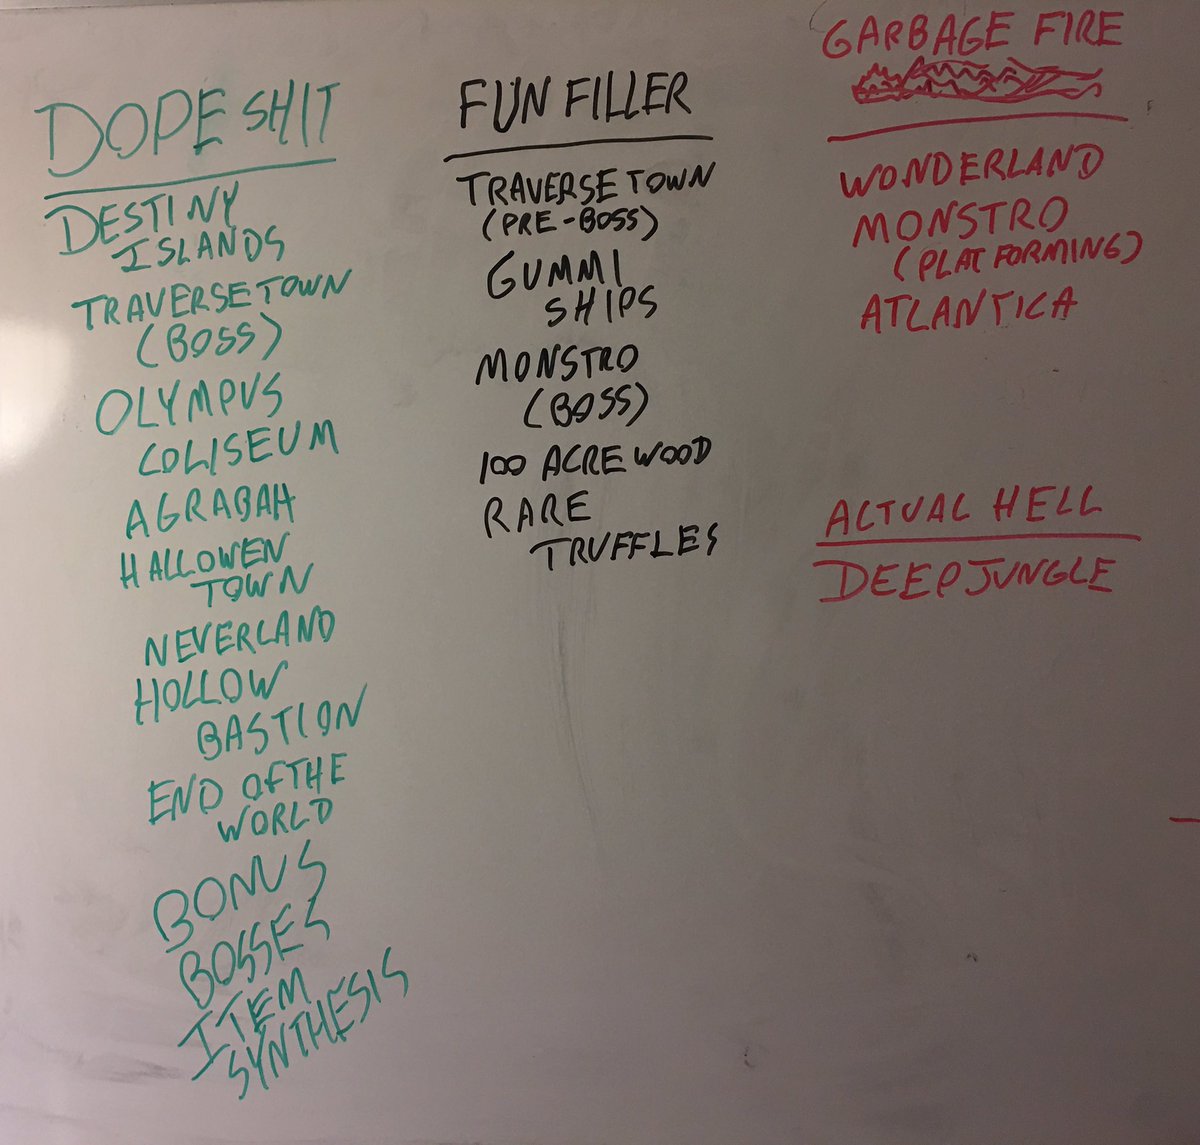 DOPE SHIT
DESTINY
ISLANDS
TRAVERSE TOWN
(BOSS)
OLYMPUS
COLISEUM
AGRABAH
HALLOWEN
TOWN
NEVERLAND
HOLLOW
BASTION
END OF THE
WORLD
BONUS
BOSSES
ITEM
SYNTHESIS
FUN FILLER
TRAVERSE TOWN
(PRE-BOSS)
GUMMI
SHIPS
MONSTRO
(BOSS)
100 ACRE WOOD
RARE
TRUFFLES
GARBAGE FIRE
WONDERLAND
MONSTRO
(PLATFORMING)
ATLANTICA
ACTUAL HELL
DEEP JUNGLE